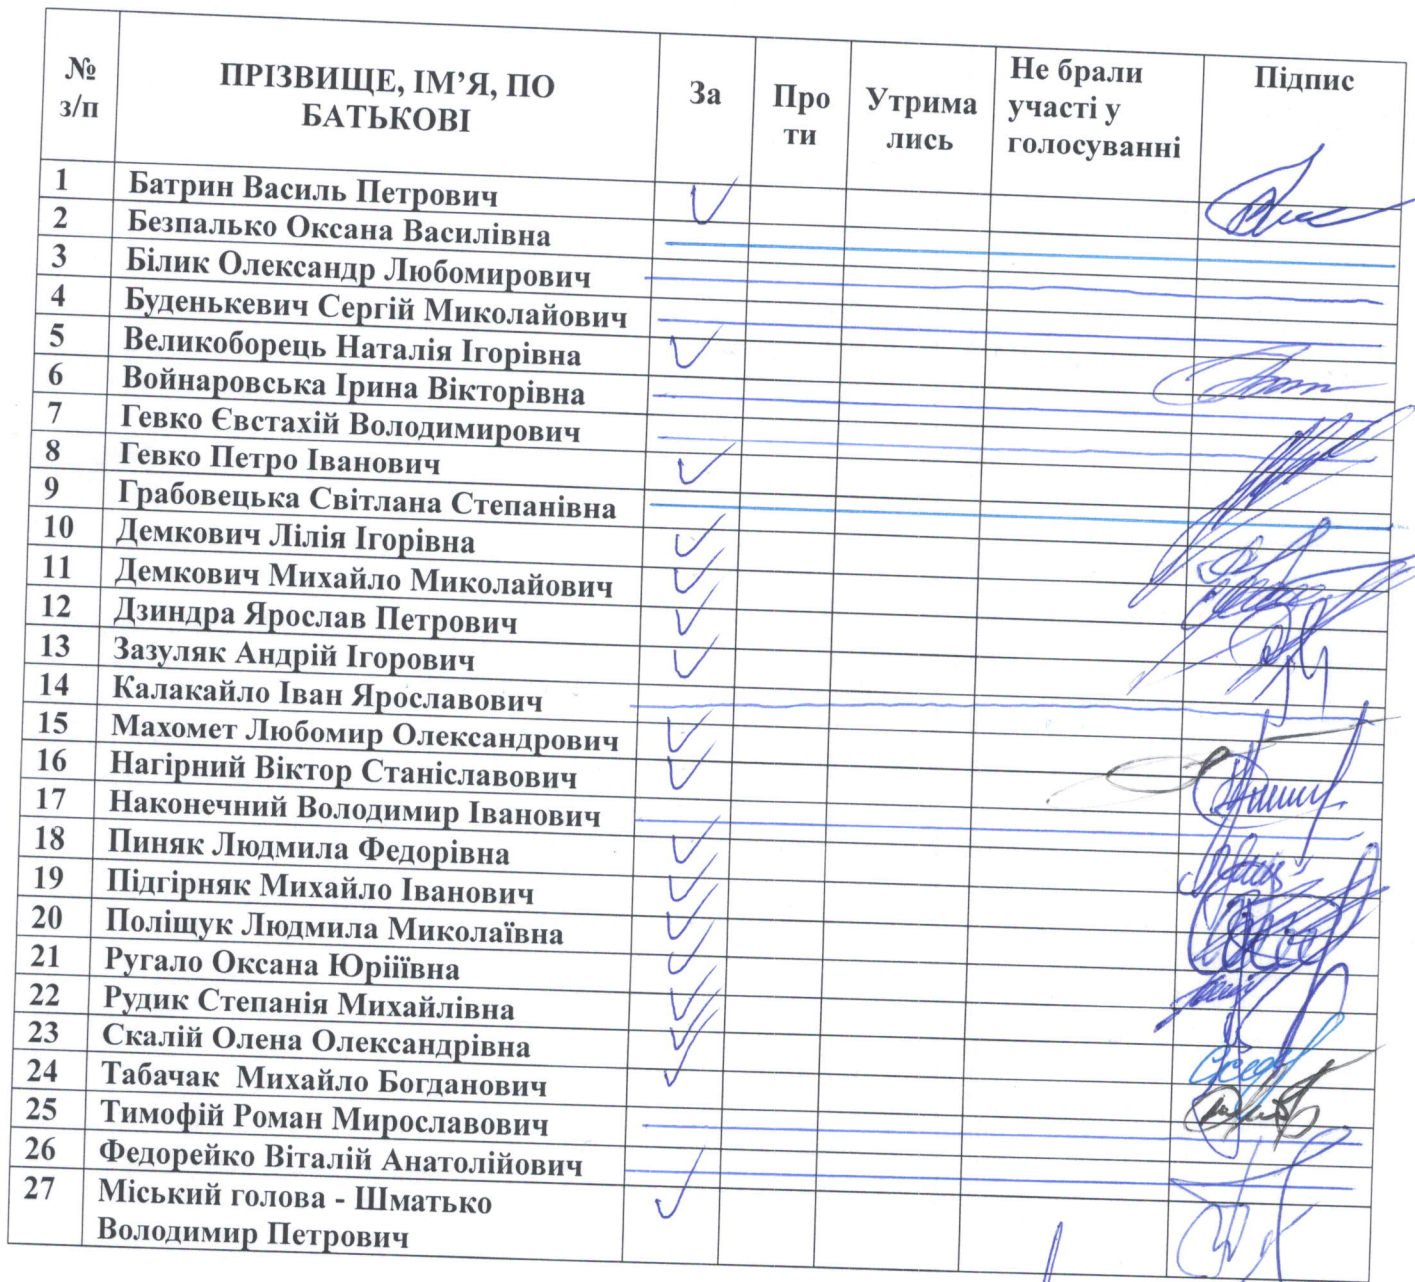 № з/п
ПРІЗВИЩЕ, ІМ’Я, ПО
БАТЬКОВІ
За
Про
ти
Утрима
лись
Не брали
участі у
голосуванні
Підпис
1 Батрин Василь Петрович
2 Безпалько Оксана Василівна
3 Білик Олександр Любомирович
4 Буденькевич Сергій Миколайович
5 Великоборець Наталія Ігорівна
6 Войнаровська Ірина Вікторівна
7 Гевко Євстахій Володимирович
8 Гевко Петро Іванович
9 Грабовецька Світлана Степанівна
10 Демкович Лілія Ігорівна
11 Демкович Михайло Миколайович
12 Дзиндра Ярослав Петрович
13 Зазуляк Андрій Ігорович
14 Калакайло Іван Ярославович
15 Махомет Любомир Олександрович
16 Нагірний Віктор Станіславович
17 Наконечний Володимир Іванович
18 Пиняк Людмила Федорівна
19 Підгірняк Михайло Іванович
20 Поліщук Людмила Миколаївна
21 Ругало Оксана Юріїївна
22 Рудик Степанія Михайлівна
23 Скалій Олена Олександрівна
24 Табачак Михайло Богданович
25 Тимофій Роман Мирославович
26 Федорейко Віталій Анатолійович
27 Міський голова - Шматько
Володимир Петрович